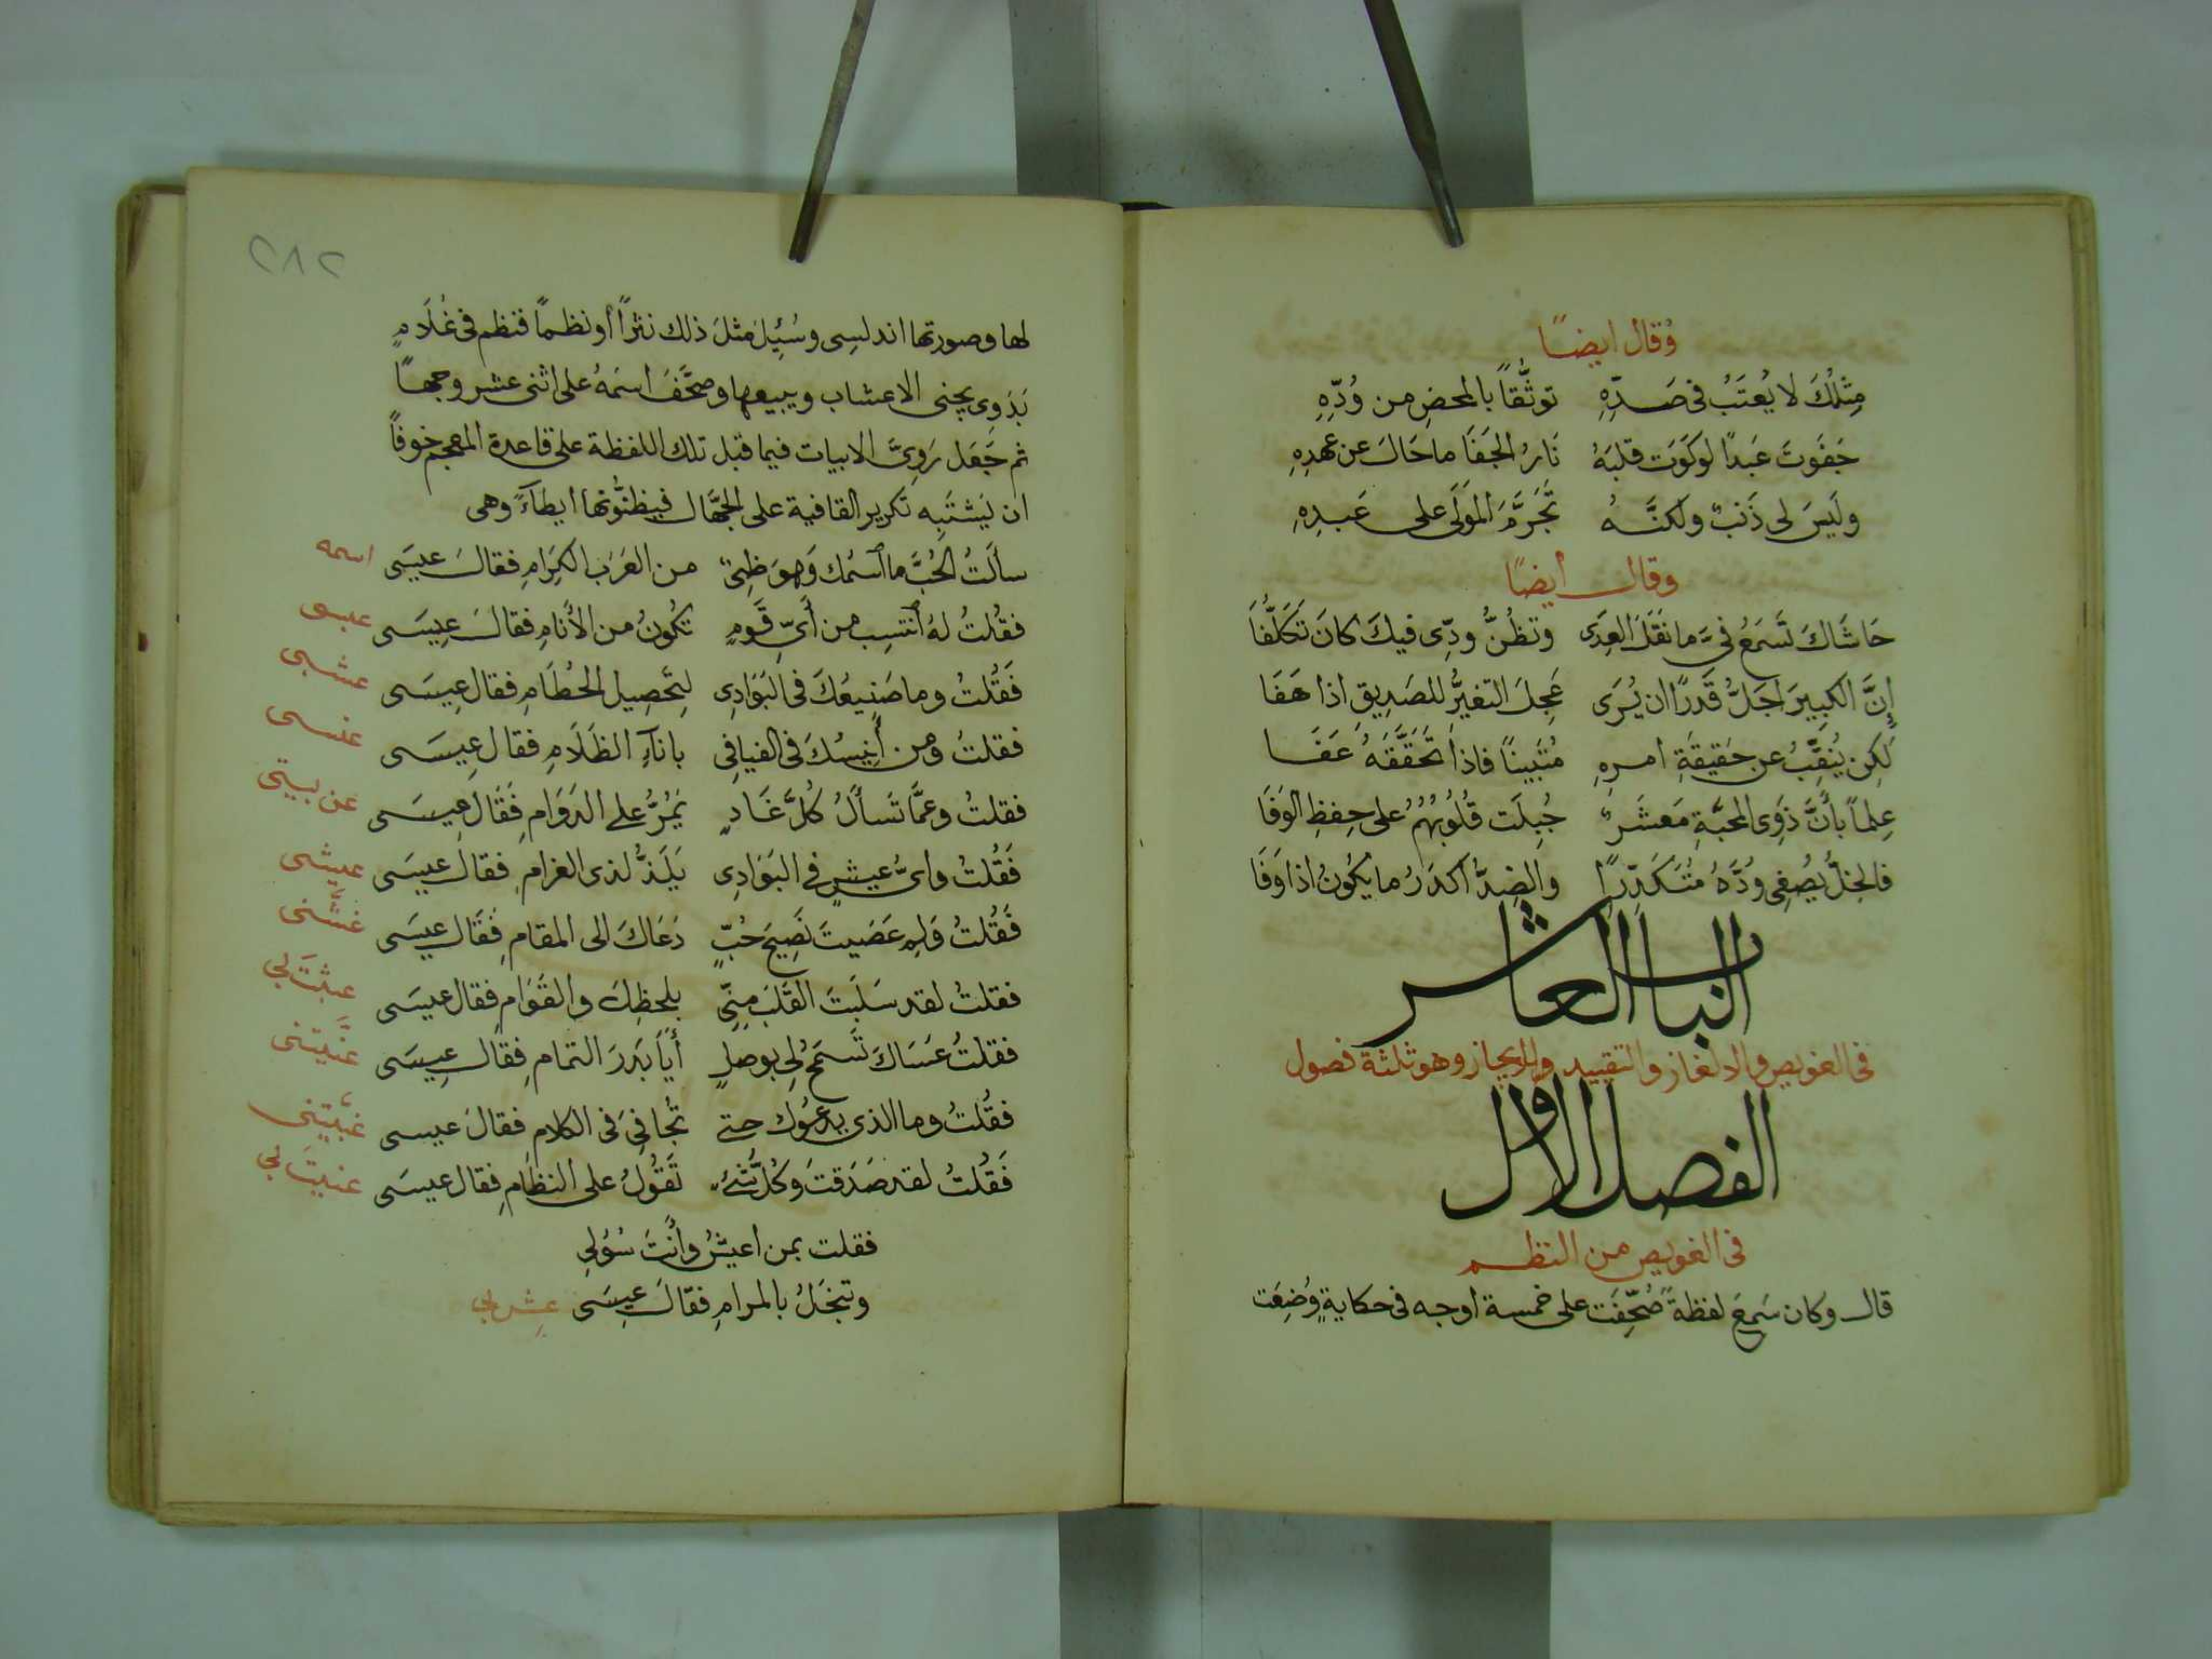 وقال ايضًا
مِثْلُكَ لا يُعتَبُ فى صَدِّهِ توثُّقًا بالمحضِ من وُدِّهِ
جَفَوتَ عَبدًا لوكَوَت قلبَهُ نَارُ الجَفَا ما حَالَ عن عهدِهِ
ولَيسَ لى ذَنبٌ ولكنَّهُ تَجَرَّمَ المَولَى على عَبدِهِ
وقال أيضًا
حَاشَاكَ تَسمَعُ فىَّ ما نَقَلَ العِدَى وتظُنُّ ودّى فيكَ كانَ تَكَلُّفَا
إنَّ الكبيرَ اجَلُّ قَدرًا ان يُرَى عَجِلَ التغيرُّ للصَدِيقِ اذا هَفَا
لكِن يُنَقِّبُ عن حَقيقَةِ امرهِ مُتَبَينًا فاذا تَحَقَّقَهُ عَفَا
عِلمًا بأنَّ ذَوِى المحَبَّةِ مَعشَرٌ جُبِلَت قُلُوبُهُمُ على حِفظِ الوَفَا
فالخِلُّ يُصْفِى وُدَّهُ مُتَكَدِّرًا والضِدُّ أكدَرُ ما يكُونُ اذا وَفَا
الباب العاشر
فى العويص والالغاز والتقييد والايجاز وهو ثلثة فصول
الفصل الاول
فى العويص من النظم
قال وكان سَمِعَ لفظةً صُحِّفَت على خمسة اوجه فى حكايةٍ وُضِعَت
٢٨٢
لها وصورتها اندلسِى وسُئِلَ مثلَ ذلك نثرًا أو نظمًا فنظم فى غُلَامٍ
بَدَوِى يجنى الاعشاب ويبيعها وصحَّفَ اسمَهُ على اثنى عشر وجهًا
ثم جَعَل رَوِىَّ الابيات فيما قبل تلك اللفظة على قاعدة المعجم خوفًا
ان يَشتَبِه تكرير القافية على الجهَّال فيظنُّونها ايطآءً وهى
سألتُ الحُبَّ ما اسمُك وَهوَ ظبىٌ من العَرَب الكِرَامِ فقالَ عيسَى اسمه
فقُلتُ لهُ انتَسِب من أَىِّ قَومٍ تكُونُ من الأنامِ فقالَ عِيسَى عبسى
فَقُلتُ وما صَنِيعُكَ فى البَوَادِى لتَحصِيلِ الحُطَامِ فقال عِيسَى عشبى
فقلتُ ومن أنِيسُكَ فى الفيافِى بانآءِ الظَلَامِ فقال عِيسَى عنسى
فقلتُ وعمَّا تَسألُ كُلَّ غَادٍ يَمُرُّ على الدوَامِ فَقَال عِيسَى عن بيتى
فَقُلتُ واىُّ عيشٍ فى البَوَادِى يَلَذُّ لذى الغرامِ فقالَ عيسَى عيشى
فَقُلتُ وَلِم عَصَيتَ نَصِيحَ حُبٍّ دَعَاكَ الى المقامِ فَقَال عيسَى غشَّنى
فقلتُ لقد سَلَبتَ القَلبَ مِنِّى بلحظِكَ والقَوَامِ فقال عيسَى عبثتَ بى
فقلتُ عَسَاكَ تَسمَحُ لى بوصلٍ أيَا بَدرَ التمامِ فقال عِيسَى عنَّيتنى
فقُلتُ وما الذى يدعُوك حتى تُجَافِىَ فى الكلامِ فقالَ عيسى
فَقُلتُ لقد صَدَقتَ وَكُلُّ شَئٍ تَقُولُ على النظَامِ فقال عيسَى عنيتَ بى
فقلت بمن اعيشُ وأنتَ سُؤلى
وتبخَلُ بالمرامِ فقالَ عيسَى عِش بى